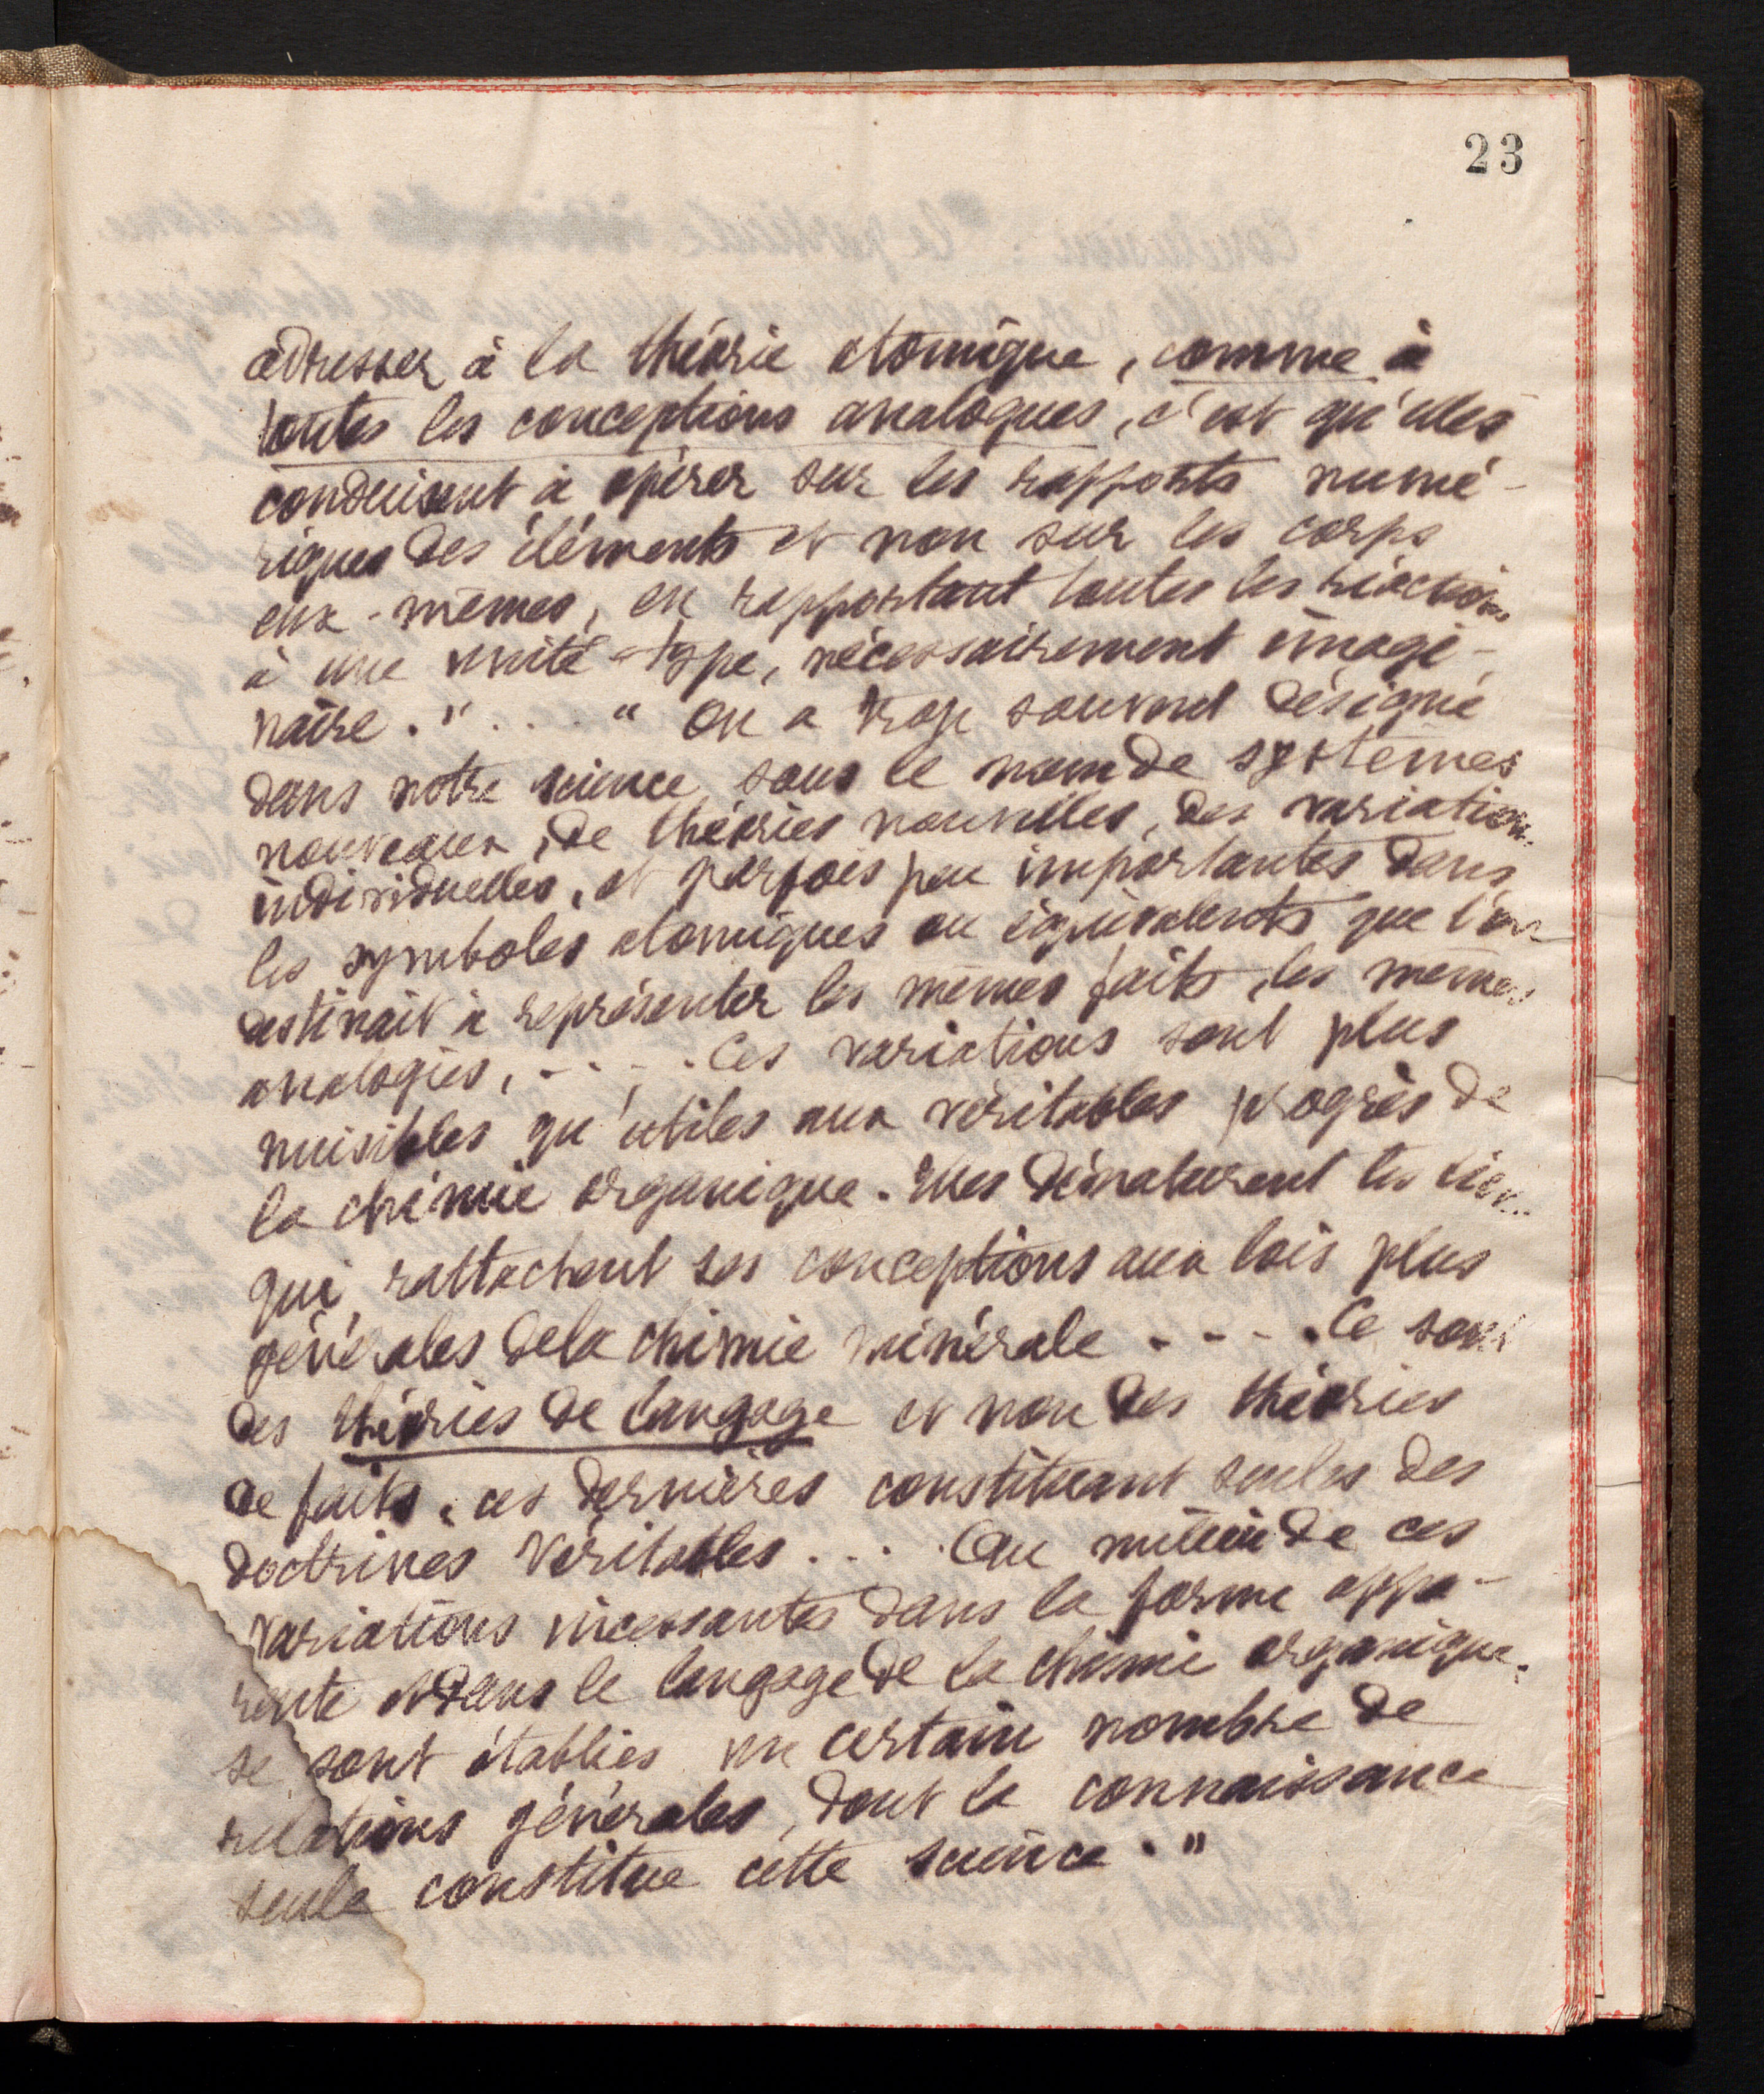 23
adresser à la théorie atomique, comme à
toutes les conceptions analogues, c'est qu'elles
conduisent à opérer sur les rapports numé-
riques des éléments et non sur les corps
eux-mêmes, en rapportant toutes les réactions
à une unité-type, nécessairement imagi-
naire." .... "On a trop souvent désigné
dans notre science sous le nom de systèmes
nouveaux, de théories nouvelles, des variations
individuelles, et parfois peu importantes dans
les symboles atomiques ou équivalents que l'on
destinait à représenter les mêmes faits, les mêmes
analogies, .... Ces variations sont plus
nuisibles qu'utiles aux véritables progrès de
la chimie organique. Elles dénaturent les liens
qui rattachent ses conceptions aux lois plus
générales de la chimie minérale .... Ce sont
des théories de langage et non des théories
de faits, ces dernières constituant seules des
doctrines véritables .... Au milieu de ces
variations incessantes dans la forme appa-
rente et dans le langage de la chimie organique,
se sont établies un certain nombre de
relations générales, dont la connaissance
seule constitue cette science."